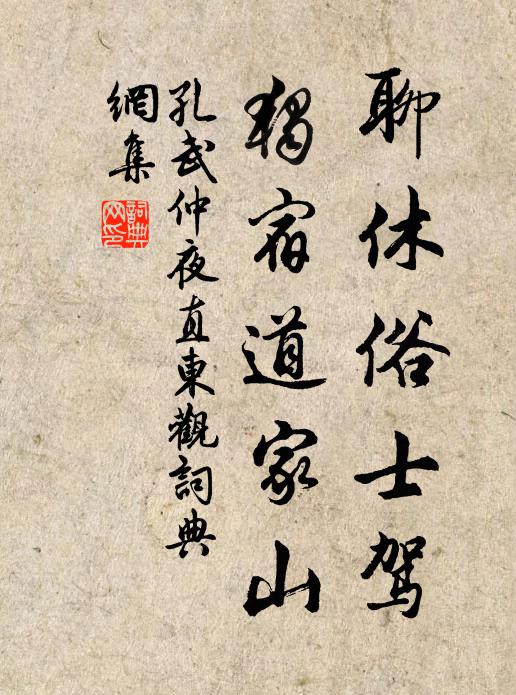 聊休俗士駕
獨宿道家山
孔武仲夜直東觀詞典
網集
詞典網印